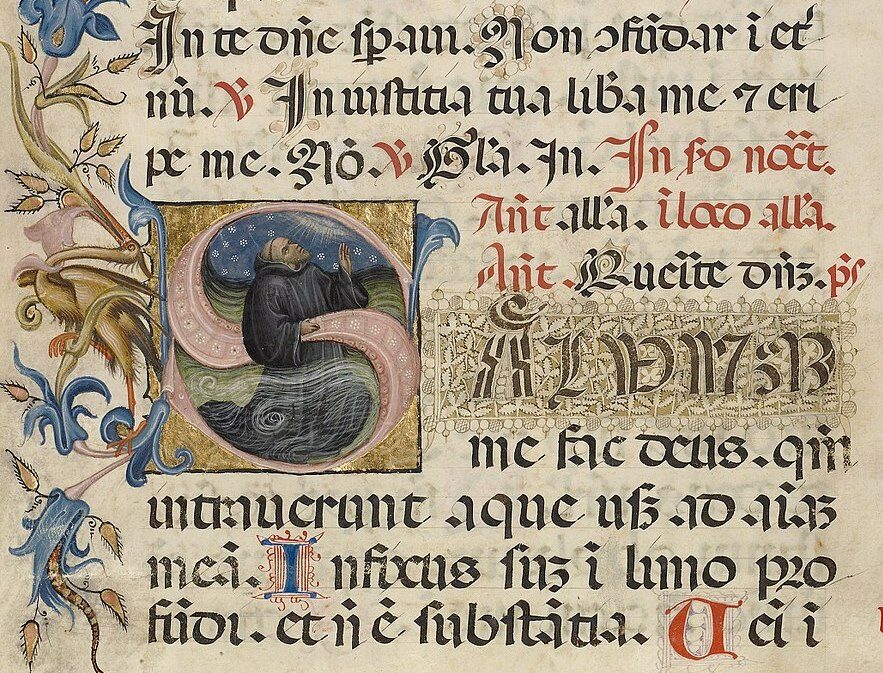 In te dn̄e sp̄aui. Non ↄfūdar ī et̄
nū. ℣ In iustitia tua lib̄a me ⁊ eri
pe me. Nō. ℣ Gl̄a. In. In fo noct̄.
An̄t all̄a. ī loco all̄a.
An̄t. Quer̄ite dn̄z. p̄s
SALVUM
me fac deus. qm̄
intrauerunt aque usqꝫ ad aīaz
meā. Infixus suz ī limo pro
fūdi. et n̄ ē substātia. Uēi ī